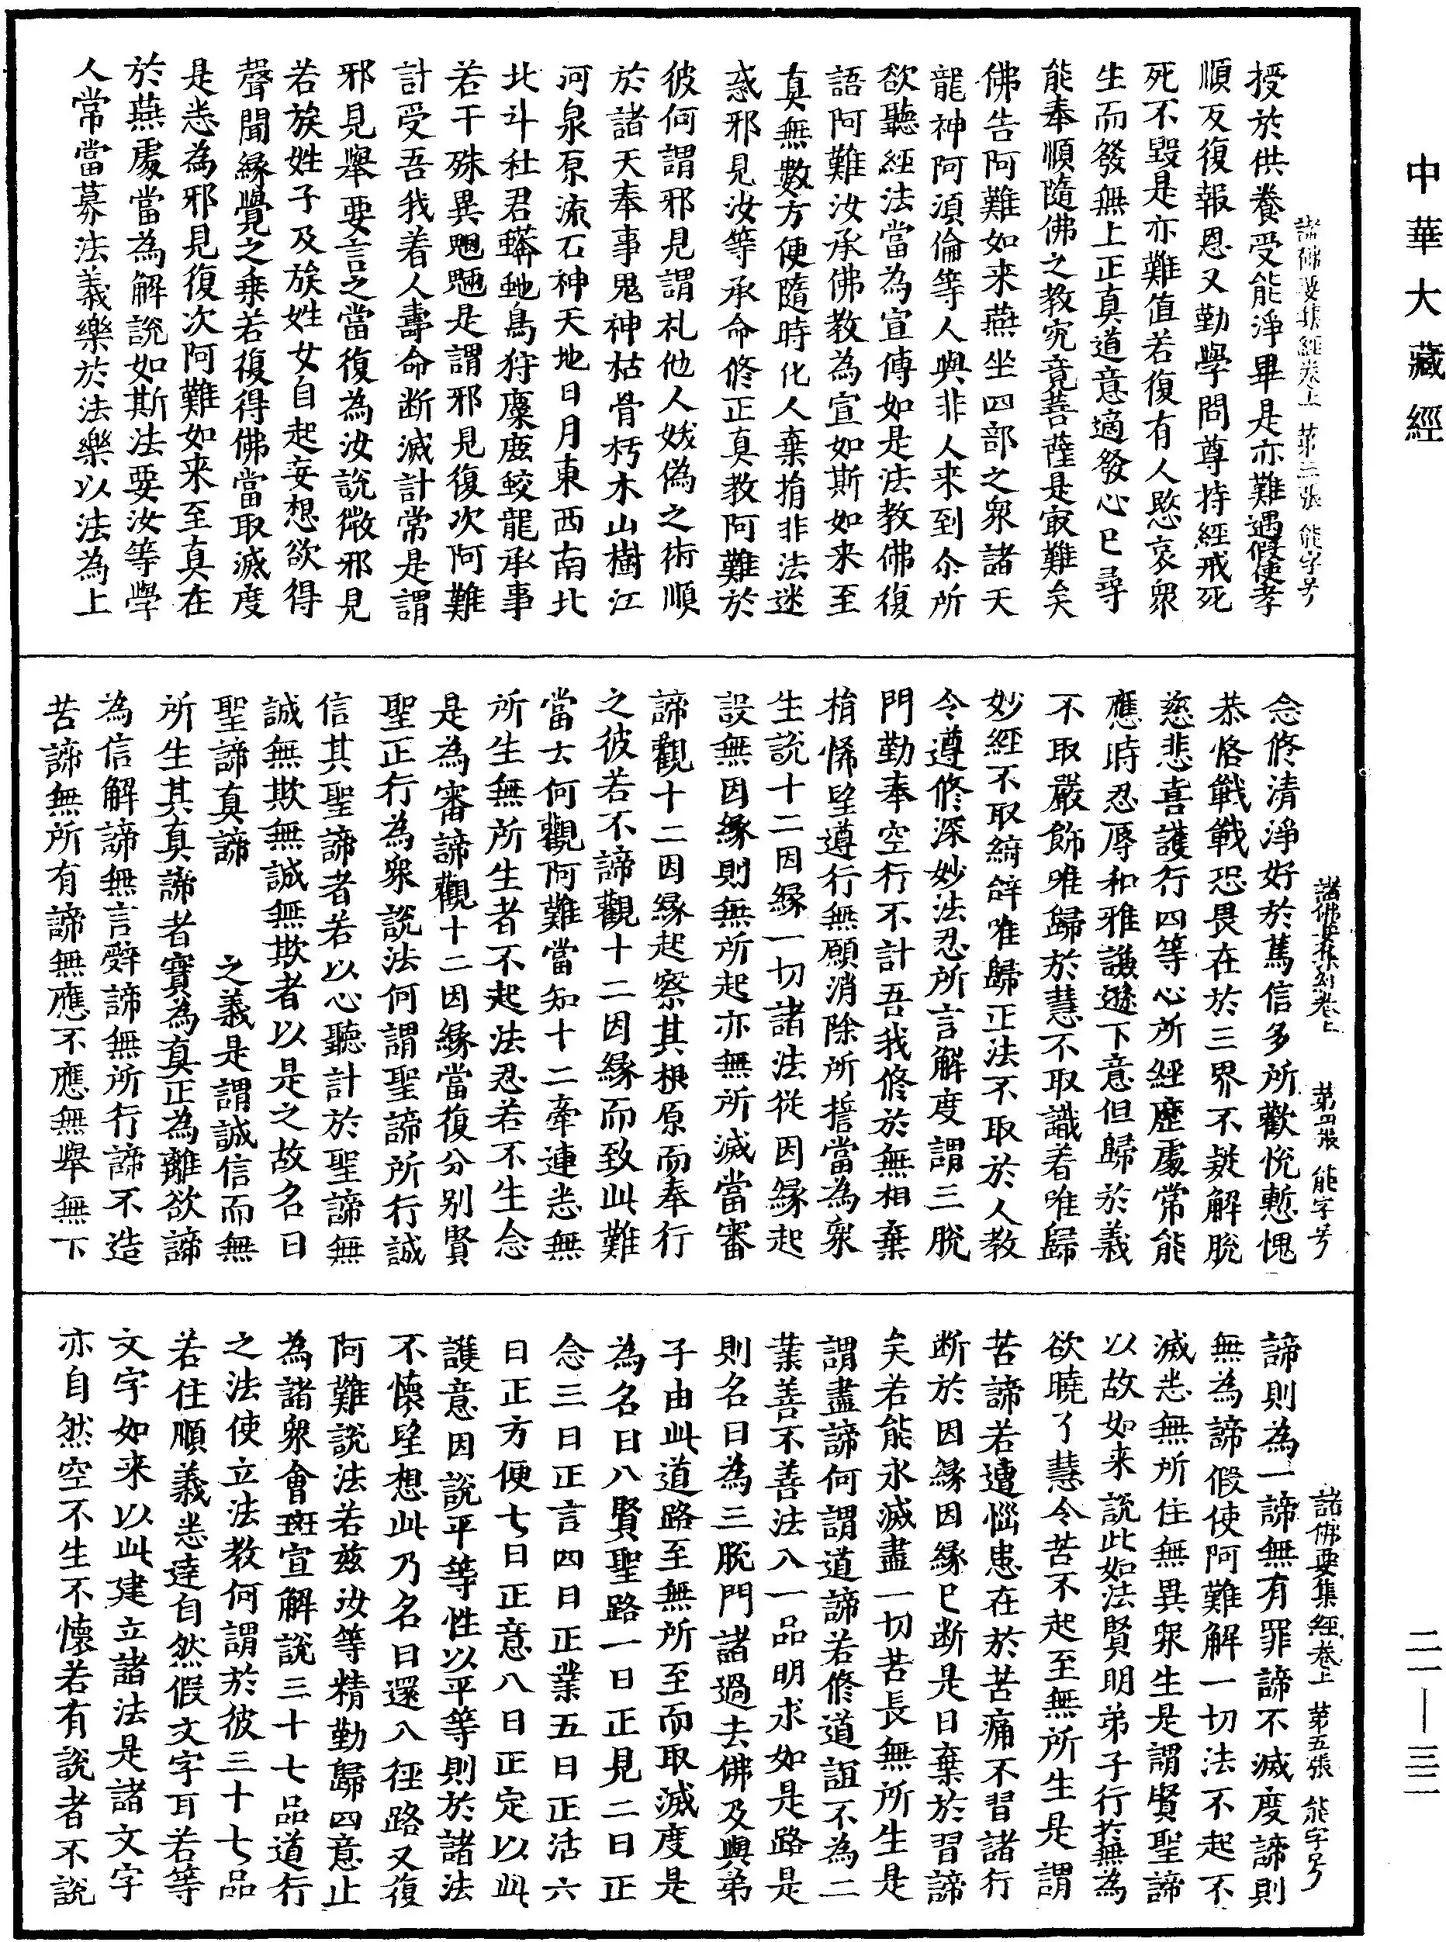 中華大藏經
二一—三二
諸佛要集經卷上 第三張 能字号
授於供養受能淨畢是亦難遇假使孝
順反復報恩又勤學問尊持經戒死
死不毀是亦難值若復有人愍哀眾
生而發無上正真道意適發心已尋
能奉順隨佛之教究竟菩薩是㝡難矣
佛告阿難如来燕坐四部之眾諸天
龍神阿須倫等人與非人来到尒所
欲聽經法當為宣傳如是法教佛復
語阿難汝承佛教為宣如斯如来至
真無數方便隨時化人棄捐非法迷
惑邪見汝等承命修正真教阿難於
彼何謂邪見謂礼他人妖偽之術順
於諸天奉事鬼神枯骨朽木山樹江
河泉原流石神天地日月東西南北
北斗社君蟒虵鳥狩麋鹿蛟龍承事
若干殊異魍魎是謂邪見復次阿難
計受吾我着人壽命断滅計常是謂
邪見舉要言之當復為汝說微邪見
若族姓子及族姓女自起妄想欲得
聲聞縁覺之乗若復得佛當取滅度
是悉為邪見復次阿難如来至真在
於燕處當為解說如斯法要汝等學
人常當募法義樂於法樂以法為上
諸佛要集經卷上 第四張 能字号
念修清淨好於篤信多所歡悅慙愧
恭恪戰戰恐畏在於三界不疑解脫
慈悲喜護行四等心所經歷處常能
應時忍辱和雅謙遜下意但歸於義
不取嚴飾唯歸於慧不取識着唯歸
妙經不取綺辭唯歸正法不取於人教
令遵修深妙法忍所言解度謂三脫
門勤奉空行不計吾我修於無相棄
捐悕望遵行無願消除所誓當為眾
生說十二因縁一切諸法從因縁起
設無因縁則無所起亦無所滅當審
諦觀十二因縁起察其根原而奉行
之彼若不諦觀十二因縁而致此難
當云何觀阿難當知十二牽連悉無
所生無所生者不起法忍若不生念
是為審諦觀十二因縁當復分别賢
聖正行為眾說法何謂聖諦所行誠
信其聖諦者若以心聽計於聖諦無
誠無欺無誠無欺者以是之故名曰
聖諦真諦 之義是謂誠信而無
所生其真諦者寶為真正為離欲諦
為信解諦無言辭諦無所行諦不造
苦諦無所有諦無應不應無舉無下
諸佛要集經卷上 第五張 能字号
諦則為一諦無有罪諦不滅度諦則
無為諦假使阿難解一切法不起不
滅悉無所住無異眾生是謂賢聖諦
以故如来說此如法賢明弟子行於無為
欲曉了慧令苦不起至無所生是謂
苦諦若遭惱患在於苦痛不習諸行
断於因縁因縁已断是曰棄於習諦
矣若能永滅盡一切苦長無所生是
謂盡諦何謂道諦若修道誼不為二
葉善不善法八一品明求如是路是
則名曰為三脫門諸過去佛及與弟
子由此道路至無所至而取滅度是
為名曰八賢聖路一曰正見二曰正
念三曰正言四曰正業五曰正活六
曰正方便七曰正意八曰正定以此
護意因說平等性以平等則於諸法
不懷望想此乃名曰還八徑路又復
阿難說法若兹汝等精勤歸四意止
為諸眾會班宣解說三十七品道行
之法使立法教何謂於彼三十七品
若住順義悉達自然假文字耳若等
文字如来以此建立諸法是諸文字
亦自然空不生不懷若有說者不說